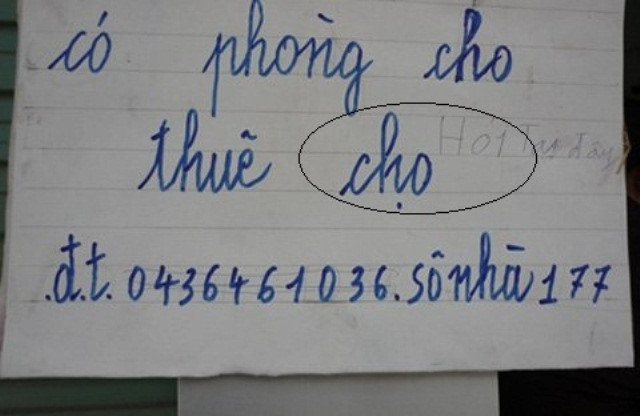 có phòng cho
thuê chọ
Hoi Tại đây
.đ.t. 0436461036. số nhà 177